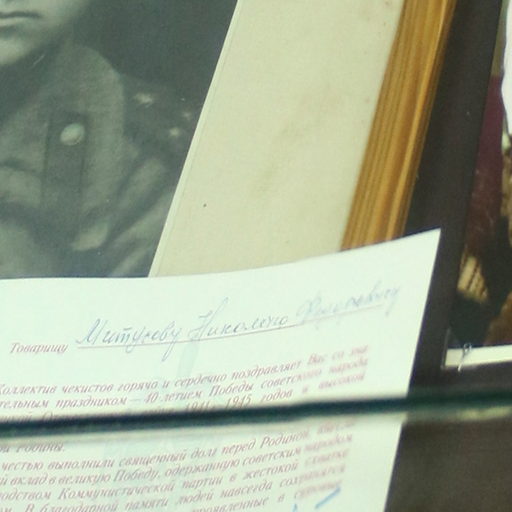 Товарищу Митусеву Николаю Федоровичу
Коллектив чекистов горячо и сердечно поздравляет Вас со зна
тельным праздником — 40-летием Победы советского народа
1941—1945 годов и высокой
ой Родины.
честью выполнили священный долг перед Родиной, внесли
й вклад в великую Победу, одержанную советским народом
водством Коммунистической партии в жестокой схватке
м. В благодарной памяти людей навсегда сохранятся
проявленные в суровые